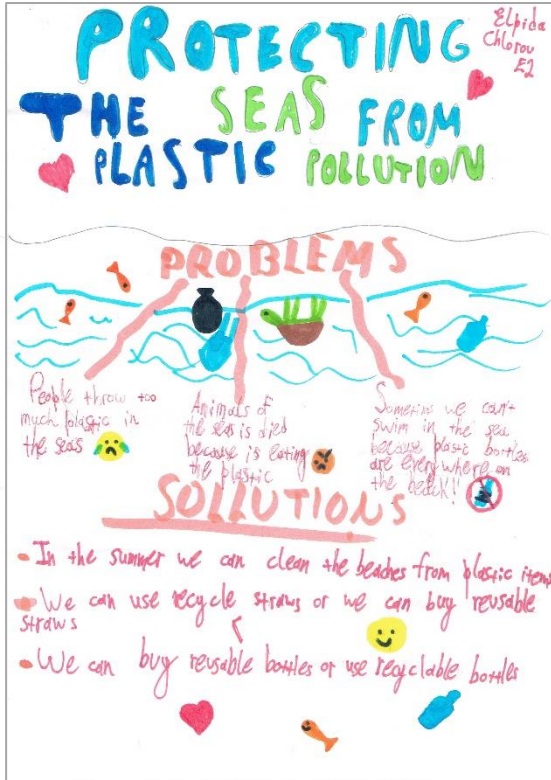 PROTECTING
Elpida
Chlorou
E2
THE SEAS FROM
PLASTIC POLLUTION
PROBLEMS
People throw too
much plastic in
the seas
Animals of
the seas is died
because is eating
the plastic
Sometime we can't
swim in the sea
because plastic bottles
are everywhere on
the beach!!
SOLLUTIONS
In the summer we can clean the beaches from plastic items
We can use recycle straws or we can buy reusable
straws
We can buy reusable bottles or use recyclable bottles